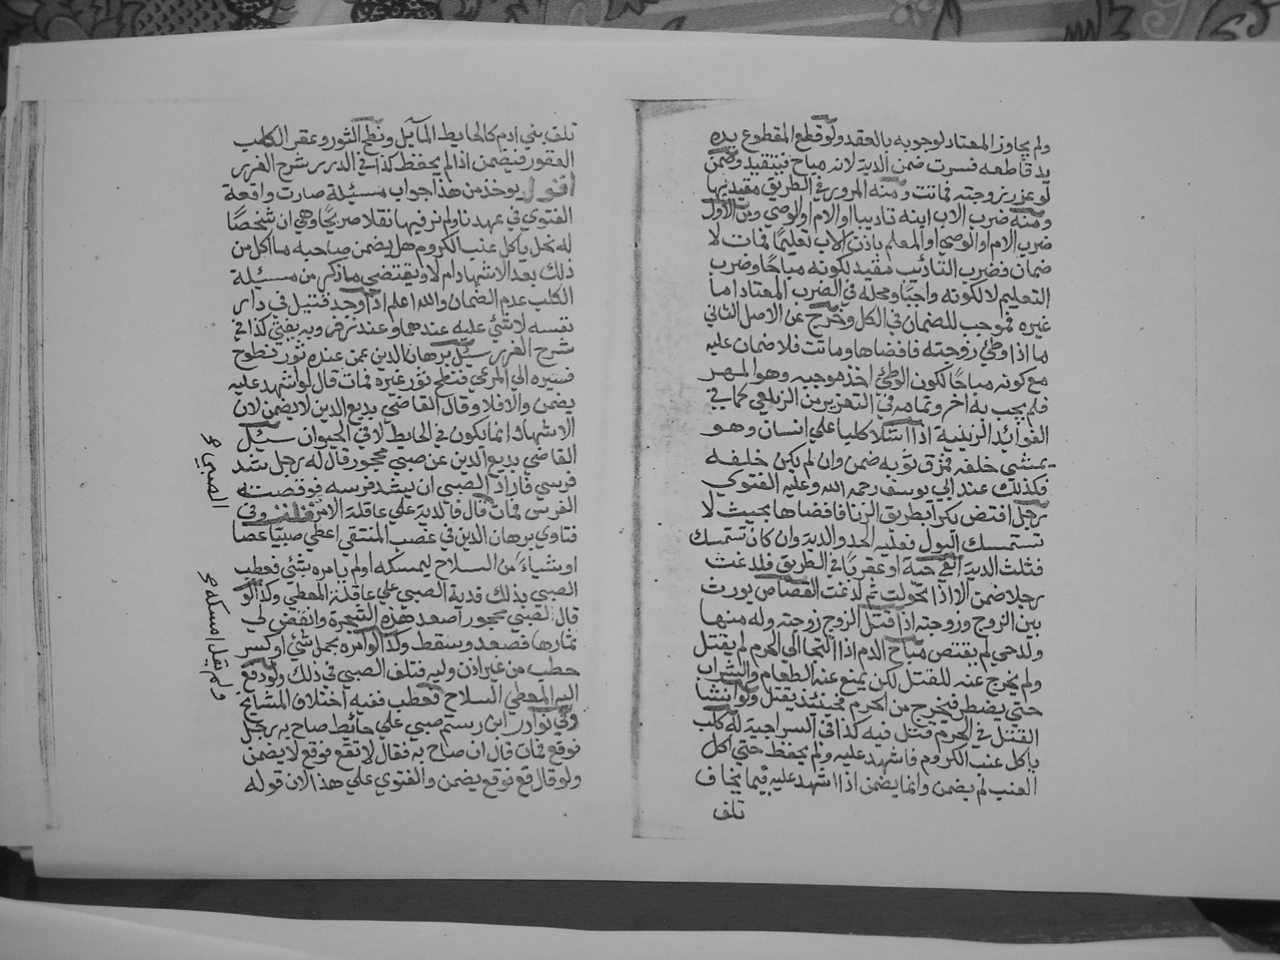 ولم يجاوز المعتاد لوجوبه بالعقد ولو قطع المقطوع يده
يد قاطعه فسرت ضمن الدية لانه مباح فيتقيد وضمن
لو عزر زوجته فماتت ومنه المرور في الطريق مقيد بها
ومنه ضرب الاب ابنه تاديبا او الام او الوصي ومن الاول
ضرب الام او الوصي او المعلم باذن الاب تعليما فمات لا
ضمان فضرب التاديب مقيد لكونه مباحا وضرب
التعليم لا لكونه واجبا ومحله في الضرب المعتاد اما
غيره فموجب للضمان في الكل وخرج عن الاصل الثاني
ما اذا وطئ زوجته فافضاها وماتت فلا ضمان عليه
مع كونه مباحا لكون الوطئ اخذ موجبه وهو المهر
فلم يجب به اخر وتمامه في التعزير من الزيلعي كما في
الفوائد الزينية اذا اشلا كلبا علي انسان وهو
يمشي خلفه فمزق ثوبه ضمن وان لم يكن خلفه
فكذلك عند ابي يوسف رحمه الله وعليه الفتوي
رجل افتض بكرا بطريق الزنا فافضاها بحيث لا
تستمسك البول فعليه الحد والدية وان كان تستمسك
فثلث الدية القي حية او عقربا في الطريق فلدغت
رجلا ضمن الا اذا تحولت ثم لدغت القصاص يورث
بين الزوج وزوجته اذا قتل الزوج زوجته وله منها
ولد حي لم يقتص مباح الدم اذا التجا الي الحرم لم يقتل
ولم يخرج عنه للقتل لكن يمنع عنه الطعام والشراب
حتي يضطر فيخرج من الحرم فحينئذ يقتل ولو انشا
القتل في الحرم قتل فيه كذا في السراجية له كلب
ياكل عنب الكروم فاشهد عليه ولم يحفظ حتي اكل
العنب لم يضمن وانما يضمن اذا اشهد عليه فيما يخاف
تلف
تلف بني ادم كالحايط المآيل ونطح الثور وعقر الكلب
العقور فيضمن اذا لم يحفظ كذا في الدرر شرح الغرر
اقول يوخذ من هذا جواب مسئلة صارت واقعة
الفتوي في عهدنا ولم نر فيها نقلا صريحا وهي ان شخصا
له نحل ياكل عنب الكروم هل يضمن صاحبه ما اكل من
ذلك بعد الاشهاد ام لا ويقتضي ما ذكر من مسئلة
الكلب عدم الضمان والله اعلم اذا وجد قتيل في دار
نفسه لا شئ عليه عندهما وعند زفر وبه يفتي كذا في
شرح الغرر سئل برهان الدين عمن عنده ثور نطوح
فسيره الي المرعي فنطح ثور غيره فمات قال لو اشهد عليه
يضمن والا فلا وقال القاضي بديع الدين لا يضمن لان
الاشهاد انما يكون في الحايط لا في الحيوان سئل
القاضي بديع الدين عن صبي محجور قال له رجل شد
فرسي فاراد الصبي ان يشد فرسه فوقصته
الفرس فمات قال فالدية علي عاقلة الامر وفي
فتاوي برهان الدين في غصب المنتقي اعطي صبيا عصا
او شياء من السلاح ليمسكه او لم يامره بشئ فعطب
الصبي بذلك فدية الصبي علي عاقلة المعطي وكذا لو
قال لصبي محجور اصعد هذه الشجرة وانفض لي
ثمارها فصعد وسقط وكذا لو امره بحمل شئ او كسر
حطب من غير اذن وليه فتلف الصبي في ذلك ولو دفع
اليه المعطي السلاح فعطب ففيه اختلاف المشايخ
وفي نوادر ابن رستم صبي علي حائط صاح به رجل
فوقع فمات قال ان صاح به فقال لا تقع فوقع لا يضمن
ولو قال قع فوقع يضمن والفتوي علي هذا لان قوله
الصبي صح
ولم يقل امسكه صح